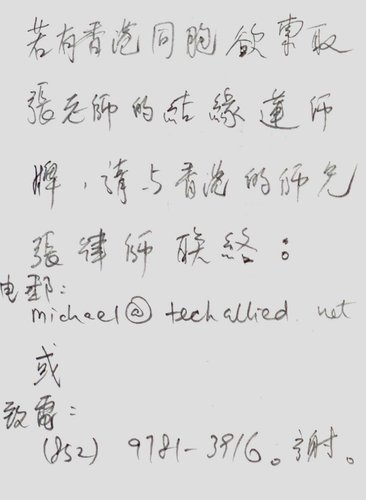 若有香港同胞欲索取
張老師的結緣蓮師
牌，請与香港的师兄
張律師联络：
电郵：
michael@techallied.net
或
致電：
(852) 9781-3916。謝。